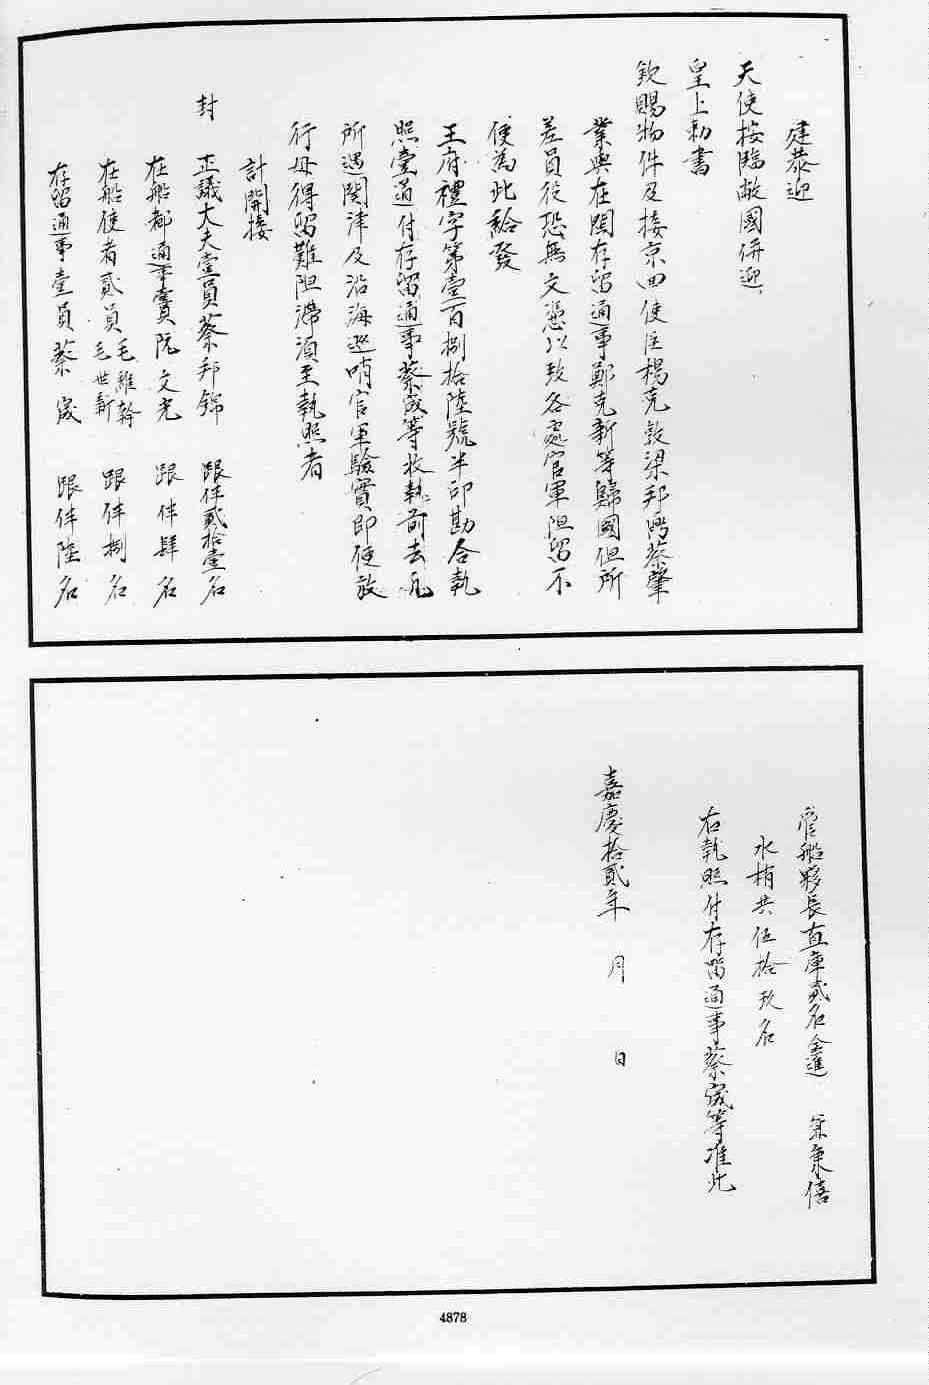 建恭迎
天使按臨敝國併迎
皇上勅書
欽賜物件及接京回使臣楊克敦梁邦弼蔡肇
業與在閩存留通事鄭克新等歸國但所
差員役恐無文憑以致各處官軍阻留不
便為此給發
王府禮字第壹百捌拾陸號半印勘合執
照壹道付存留通事蔡宬等收執前去凡
所遇関津及沿海巡哨官軍驗實即便放
行毋得留難阻滯須至執照者
計開接
封 正議大夫壹員蔡邦錦 跟伴貳拾壹名
在船都通事壹員阮文光 跟伴肆名
在船使者貳員毛維幹毛世新 跟伴捌名
存留通事壹員蔡宬 跟伴陸名
管船夥長直庫貳名金進 秉僖
水梢共伍拾玖名
右執照付存留通事蔡宬等准此
嘉慶拾貳年 月 日
4878